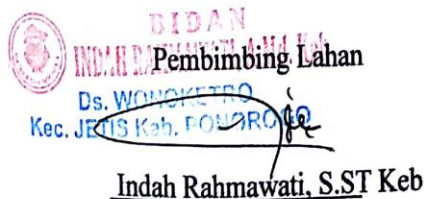 BIDAN
INDAH RAHMAWATI, A.Md. Keb
Pembimbing Lahan
Ds. WONOKETRO
Kec. JETIS Kab. PONOROGO
Indah Rahmawati, S.ST Keb